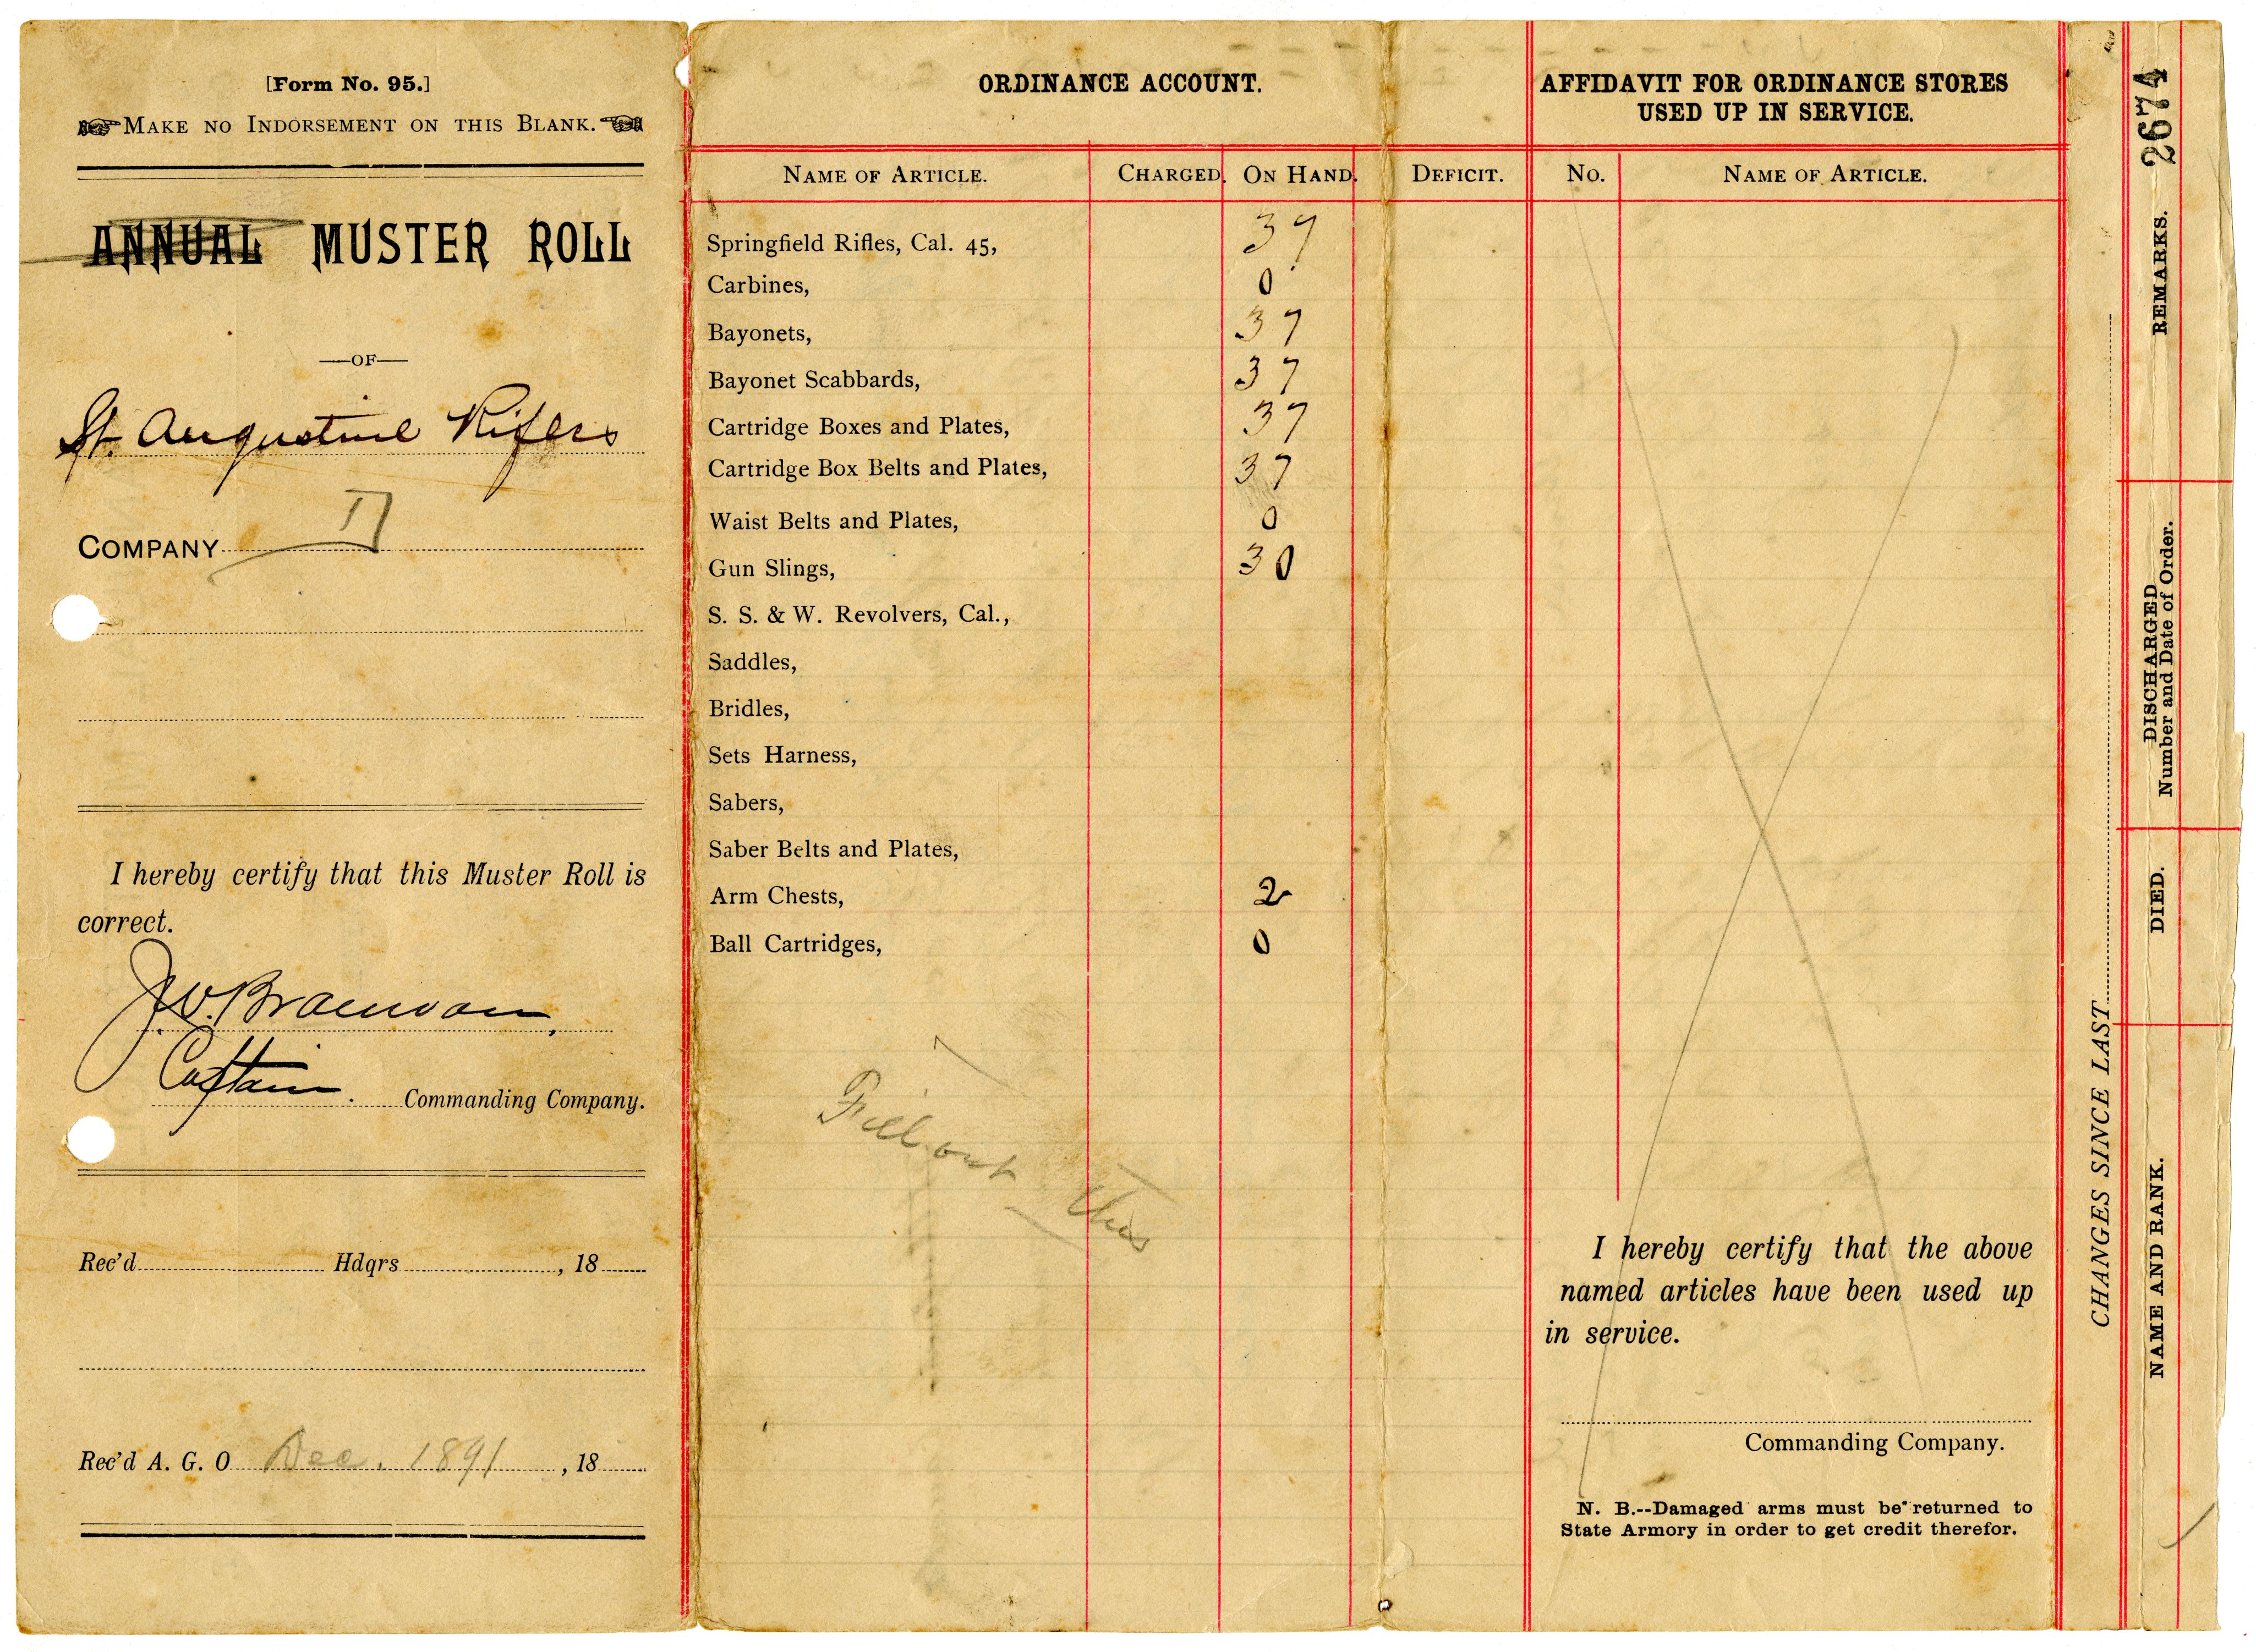 [Form No. 95.]
MAKE NO INDORSEMENT ON THIS BLANK.
ANNUAL MUSTER ROLL
—OF—
St. Augustine Rifles
COMPANY
I hereby certify that this Muster Roll is
correct.
Captain. Commanding Company.
Rec'd Hdqrs , 18
Rec'd A. G. O. Dec. 1891 , 18
ORDINANCE ACCOUNT.
NAME OF ARTICLE. CHARGED. ON HAND. DEFICIT.
Springfield Rifles, Cal. 45, 37
Carbines, 0
Bayonets, 37
Bayonet Scabbards, 37
Cartridge Boxes and Plates, 37
Cartridge Box Belts and Plates, 37
Waist Belts and Plates, 0
Gun Slings, 30
S. S. & W. Revolvers, Cal.,
Saddles,
Bridles,
Sets Harness,
Sabers,
Saber Belts and Plates,
Arm Chests, 2
Ball Cartridges, 0
Fill out this
AFFIDAVIT FOR ORDINANCE STORES
USED UP IN SERVICE.
No. NAME OF ARTICLE.
I hereby certify that the above
named articles have been used up
in service.
Commanding Company.
N. B.--Damaged arms must be returned to
State Armory in order to get credit therefor.
CHANGES SINCE LAST
NAME AND RANK.
DIED.
DISCHARGED
Number and Date of Order.
REMARKS.
2674